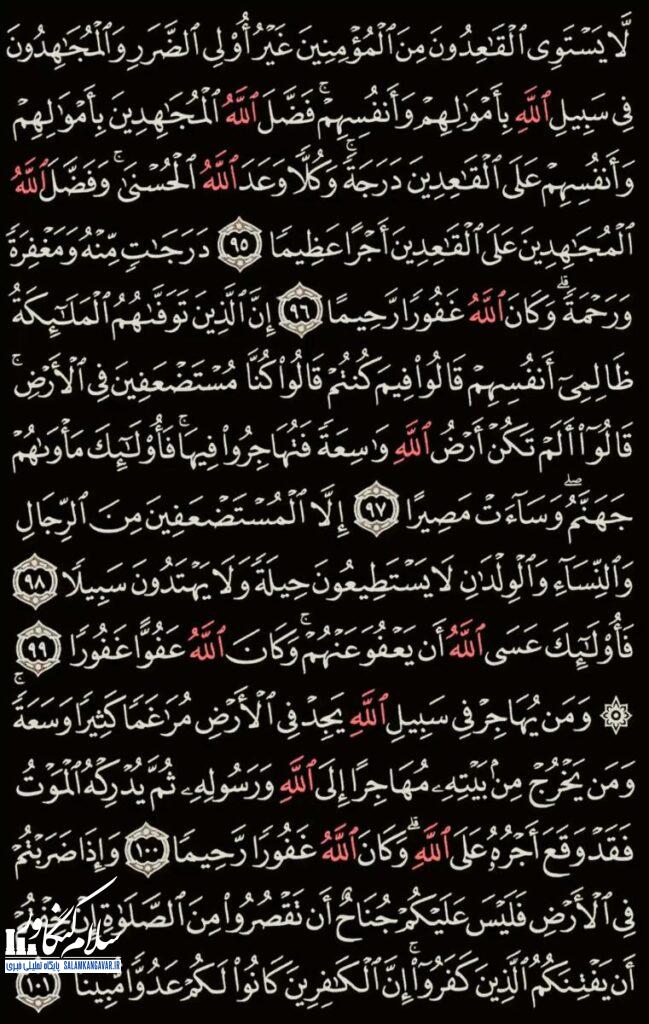 لَّا يَسْتَوِى ٱلْقَٰعِدُونَ مِنَ ٱلْمُؤْمِنِينَ غَيْرُ أُو۟لِى ٱلضَّرَرِ وَٱلْمُجَٰهِدُونَ
فِى سَبِيلِ ٱللَّهِ بِأَمْوَٰلِهِمْ وَأَنفُسِهِمْ ۚ فَضَّلَ ٱللَّهُ ٱلْمُجَٰهِدِينَ بِأَمْوَٰلِهِمْ
وَأَنفُسِهِمْ عَلَى ٱلْقَٰعِدِينَ دَرَجَةً ۚ وَكُلًّا وَعَدَ ٱللَّهُ ٱلْحُسْنَىٰ ۚ وَفَضَّلَ ٱللَّهُ
ٱلْمُجَٰهِدِينَ عَلَى ٱلْقَٰعِدِينَ أَجْرًا عَظِيمًا ٩٥ دَرَجَٰتٍ مِّنْهُ وَمَغْفِرَةً
وَرَحْمَةً ۚ وَكَانَ ٱللَّهُ غَفُورًا رَّحِيمًا ٩٦ إِنَّ ٱلَّذِينَ تَوَفَّىٰهُمُ ٱلْمَلَٰٓئِكَةُ
ظَالِمِىٓ أَنفُسِهِمْ قَالُوا۟ فِيمَ كُنتُمْ ۖ قَالُوا۟ كُنَّا مُسْتَضْعَفِينَ فِى ٱلْأَرْضِ ۚ
قَالُوٓا۟ أَلَمْ تَكُنْ أَرْضُ ٱللَّهِ وَٰسِعَةً فَتُهَاجِرُوا۟ فِيهَا ۚ فَأُو۟لَٰٓئِكَ مَأْوَىٰهُمْ
جَهَنَّمُ ۖ وَسَآءَتْ مَصِيرًا ٩٧ إِلَّا ٱلْمُسْتَضْعَفِينَ مِنَ ٱلرِّجَالِ
وَٱلنِّسَآءِ وَٱلْوِلْدَٰنِ لَا يَسْتَطِيعُونَ حِيلَةً وَلَا يَهْتَدُونَ سَبِيلًا ٩٨
فَأُو۟لَٰٓئِكَ عَسَى ٱللَّهُ أَن يَعْفُوَ عَنْهُمْ ۚ وَكَانَ ٱللَّهُ عَفُوًّا غَفُورًا ٩٩
۞ وَمَن يُهَاجِرْ فِى سَبِيلِ ٱللَّهِ يَجِدْ فِى ٱلْأَرْضِ مُرَٰغَمًا كَثِيرًا وَسَعَةً ۚ
وَمَن يَخْرُجْ مِنۢ بَيْتِهِۦ مُهَاجِرًا إِلَى ٱللَّهِ وَرَسُولِهِۦ ثُمَّ يُدْرِكْهُ ٱلْمَوْتُ
فَقَدْ وَقَعَ أَجْرُهُۥ عَلَى ٱللَّهِ ۗ وَكَانَ ٱللَّهُ غَفُورًا رَّحِيمًا ١٠٠ وَإِذَا ضَرَبْتُمْ
فِى ٱلْأَرْضِ فَلَيْسَ عَلَيْكُمْ جُنَاحٌ أَن تَقْصُرُوا۟ مِنَ ٱلصَّلَوٰةِ إِنْ خِفْتُمْ
أَن يَفْتِنَكُمُ ٱلَّذِينَ كَفَرُوٓا۟ ۚ إِنَّ ٱلْكَٰفِرِينَ كَانُوا۟ لَكُمْ عَدُوًّا مُّبِينًا ١٠١
سلام کنگاور
پایگاه تحلیلی خبری SALAMKANGAVAR.IR